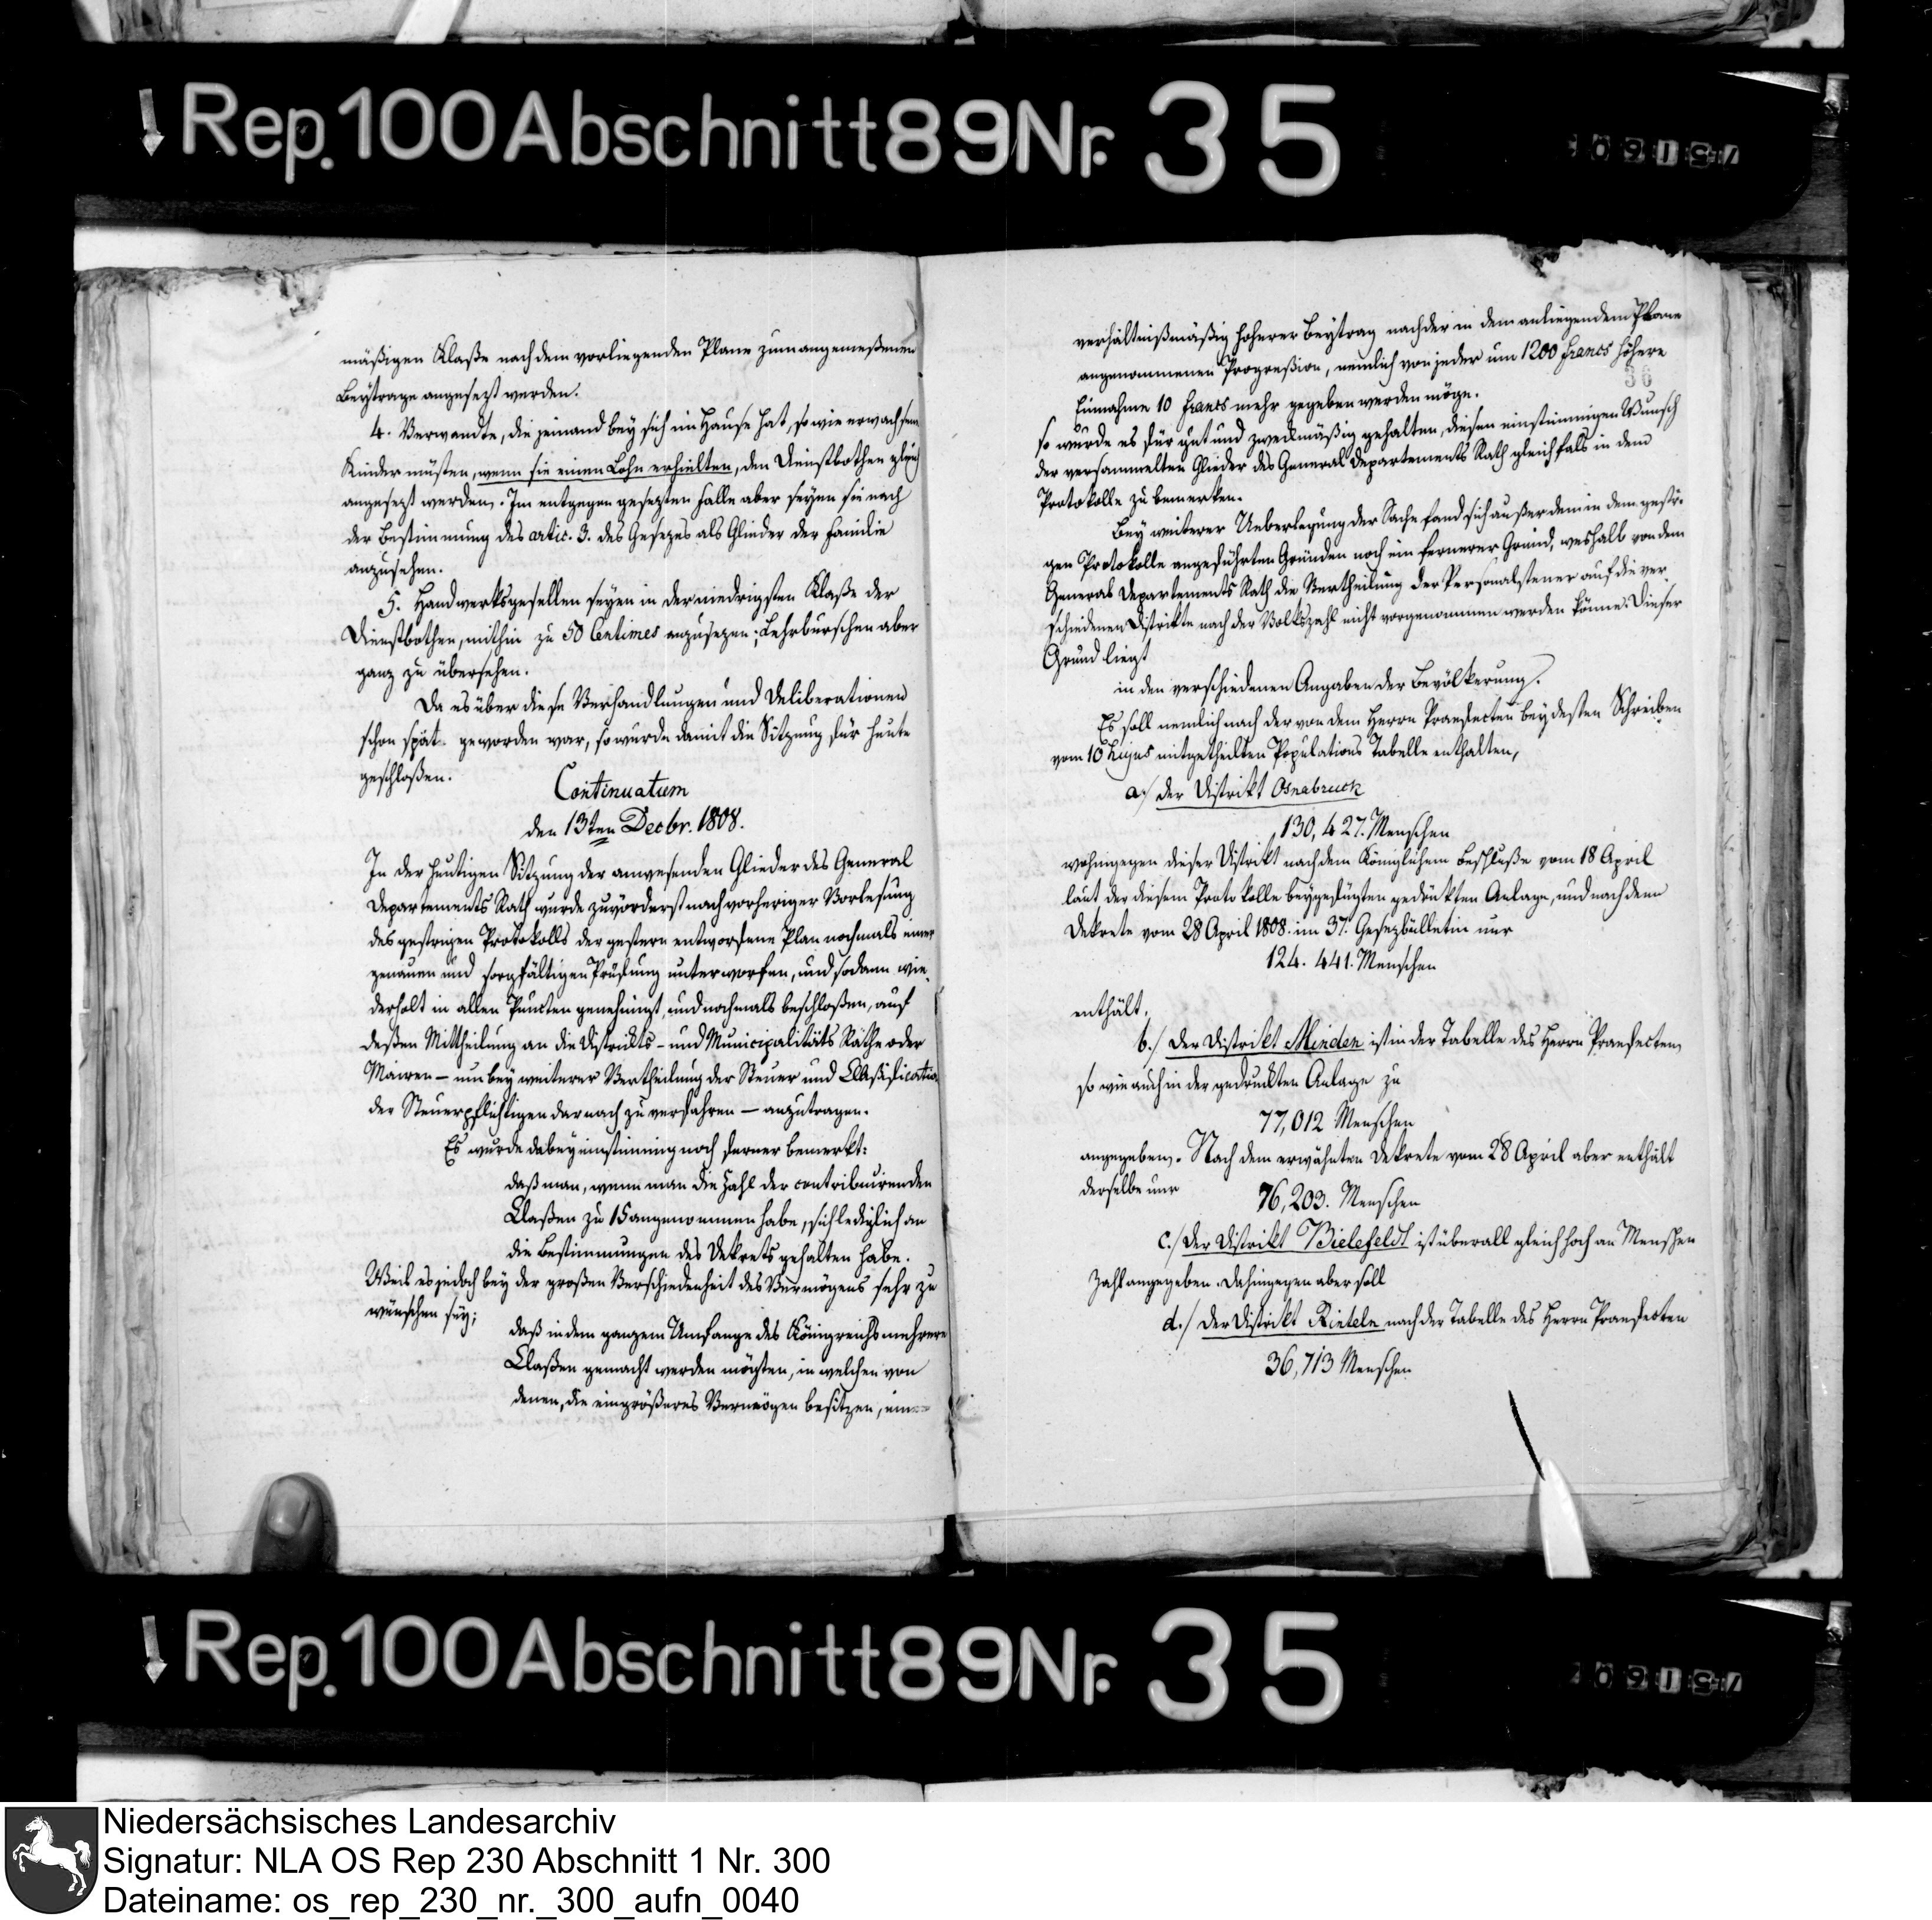 Rep. 100 Abschnitt 89 Nr. 35
mäßigen Klaße nach dem vorliegenden Plane zum angemeßenen
Beytrage angesezt werden.
4. Verwandte, die jemand bey sich im Hause hat, so wie erwachsene
Kinder müsten, wenn sie einen Lohn erhielten, den Dienstbothen gleich
angesezt werden. Im entgegen gesezten Falle aber seyen sie nach
der Bestimmung des artic. 3. des Gesezes als Glieder der Familie
anzusehen.
5. Handwerksgesellen seyen in der niedrigsten Klaße der
Dienstbothen, mithin zu 50 Centimes anzusezen; Lehrburschen aber
ganz zu übersehen.
Da es über diese Verhandlungen und Deliberationen
schon spät geworden war, so wurde damit die Sitzung für heute
geschloßen.
Continuatum
den 13ten Decbr. 1808.
In der heutigen Sitzung der anwesenden Glieder des General
Departements Rath wurde zuvörderst nach vorheriger Vorlesung
des gestrigen Protokolls der gestern entworfene Plan nochmals einer
genauen und sorgfältigen Prüfung unterworfen, und sodann wie-
derholt in allen Puncten genehmigt, und nochmals beschloßen, auf
deßen Mittheilung an die Distrikts- und Municipalitäts Räthe oder
Mairen - um bey weiterer Vertheilung der Steuer und Claßification
der Steuerpflichtigen darnach zu verfahren - anzutragen.
Es wurde dabey einstimmig noch ferner bemerkt:
daß man, wenn man die Zahl der contribuirenden
Claßen zu 15 angenommen habe, sich lediglich an
die Bestimmungen des Dekrets gehalten habe.
Weil es jedoch bey der großen Verschiedenheit des Vermögens sehr zu
wünschen sey;
daß in dem ganzen Umfange des Königreichs mehrere
Claßen gemacht werden mögten, in welchen von
denen, die ein größeres Vermögen besitzen, ein
36
verhältnißmäßig höherer Beytrag nach der in dem anliegendem Plane
angenommenen Progreßion, nemlich von jeder um 1200 Francs höhere
Einnahme 10 Francs mehr gegeben werden möge.
so wurde es für gut und zweckmäßig gehalten, diesen einstimmigen Wunsch
der versammelten Glieder des General Departements Rath gleichfals in dem
Protokolle zu bemerken.
Bey weiterer Ueberlegung der Sache fand sich außer dem in dem gestri-
gen Protokolle angeführten Gründen noch ein fernerer Grund, weshalb von dem
General Departements Rath die Vertheilung der Personalsteuer auf die ver-
schiedenen Distrikte nach der Volkszahl nicht vorgenommen werden könne. Dieser
Grund liegt
in den verschiedenen Angaben der Bevölkerung.
Es soll nemlich nach der von dem Herrn Praefecten bey deßen Schreiben
vom 10 hujus mitgetheilten Populations Tabelle enthalten,
a./ der Distrikt Osnabruck
130,427. Menschen
wohingegen dieser Distrikt nach dem Königlichem Beschluße vom 18 April
laut der diesem Protokolle beygefügten gedrükten Anlage, und nach dem
Dekrete vom 28 April 1808. im 37. Gesezbülletin nur
124. 441. Menschen
enthält.
b./ Der Distrikt Minden ist in der Tabelle des Herrn Praefecten,
so wie auch in der gedruckten Anlage zu
77,012 Menschen
angegeben. Nach dem erwähnten Dekrete vom 28 April aber enthält
derselbe nur
76,203. Menschen
c./ Der Distrikt Bielefeldt ist überall gleich hoch an Menschen
Zahl angegeben. Dahingegen aber soll
d./ Der Distrikt Rinteln nach der Tabelle des Herrn Praefecten
36,713 Menschen
Rep. 100 Abschnitt 89 Nr. 35
Niedersächsisches Landesarchiv
Signatur: NLA OS Rep 230 Abschnitt 1 Nr. 300
Dateiname: os_rep_230_nr._300_aufn_0040